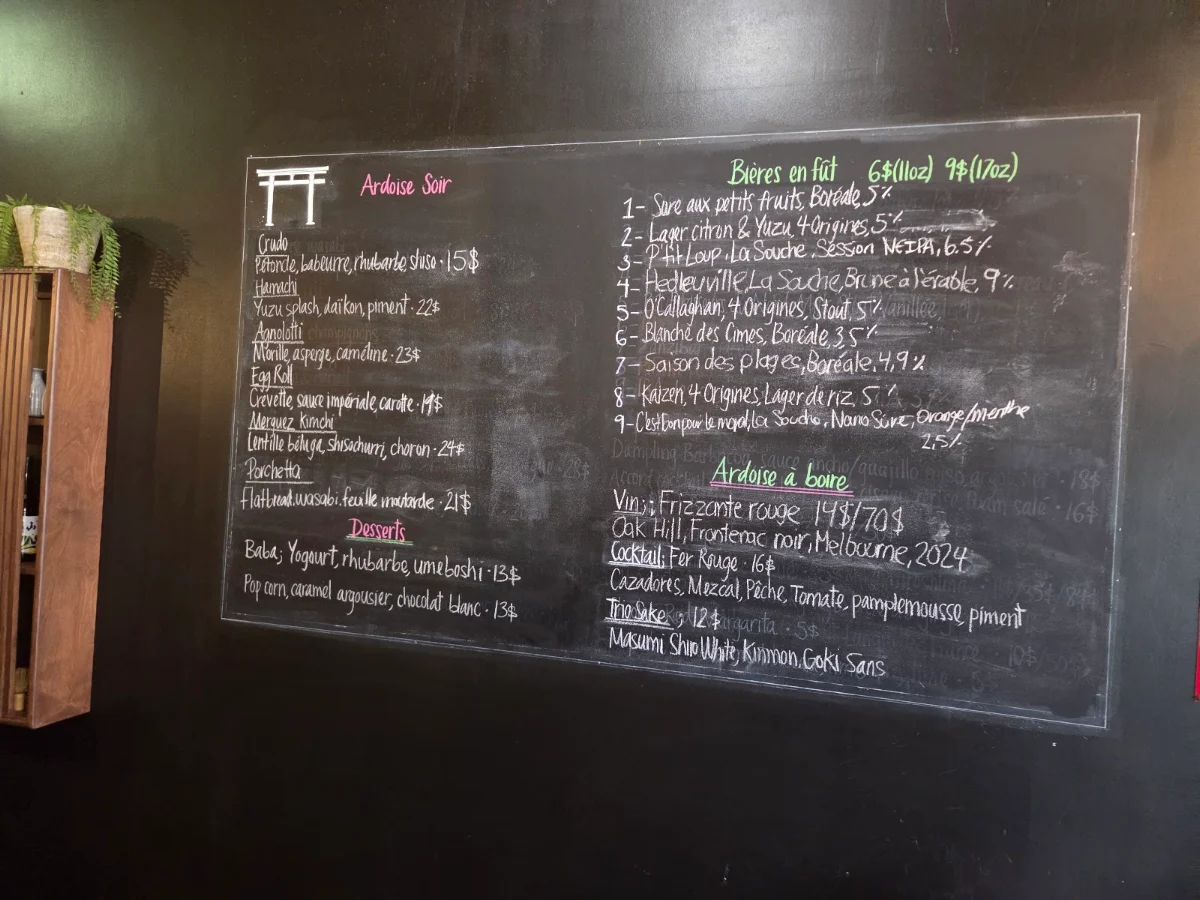 Ardoise Soir
Crudo
Pétoncle, babeurre, rhubarbe, shiso · 15$
Hamachi
Yuzu splash, daïkon, piment · 22$
Agnolotti
Morille, asperge, cameline · 23$
Egg Roll
Crevette, sauce impériale, carotte · 19$
Merguez Kimchi
Lentille béluga, shisochurri, choron · 24$
Porchetta
Flatbread, wasabi, feuille moutarde · 21$
Desserts
Baba; Yogourt, rhubarbe, umeboshi · 13$
Pop corn, caramel argousier, chocolat blanc · 13$
Bières en fût 6$(11oz) 9$(17oz)
1- Sure aux petits fruits, Boréale, 5%
2- Lager citron & Yuzu, 4 Origines, 5%
3- P'tit Loup, La Souche, Session NEIPA, 6.5%
4- Hedleyville, La Souche, Brune à l'érable, 9%
5- O'Callaghan, 4 Origines, Stout, 5%
6- Blanche des Cimes, Boréale, 3,5%
7- Saison des plages, Boréale, 4,9%
8- Kaizen, 4 Origines, Lager de riz, 5%
9- C'est bon pour le moral, La Souche, Nano Sûre, Orange/menthe
2,5%
Ardoise à boire
Vin; Frizzante rouge 14$/70$
Oak Hill, Frontenac noir, Melbourne, 2024
Cocktail; Fer Rouge · 16$
Cazadores, Mezcal, Pêche, Tomate, pamplemousse, piment
Trio Sake ; 12$
Masumi Shiro White, Kinmon, Goki Sans